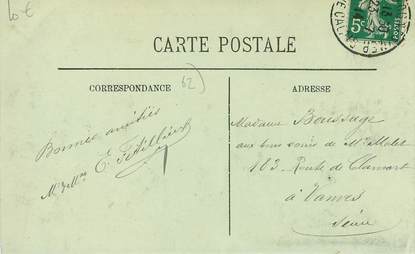 10 €
CARTE POSTALE
CORRESPONDANCE
62
ADRESSE
Bonnes amitiés
Mr & Mme E.
Madame Boissage
aux bons soins de Mr Molet
103 Route de Clamart
à Vanves
Seine
5c